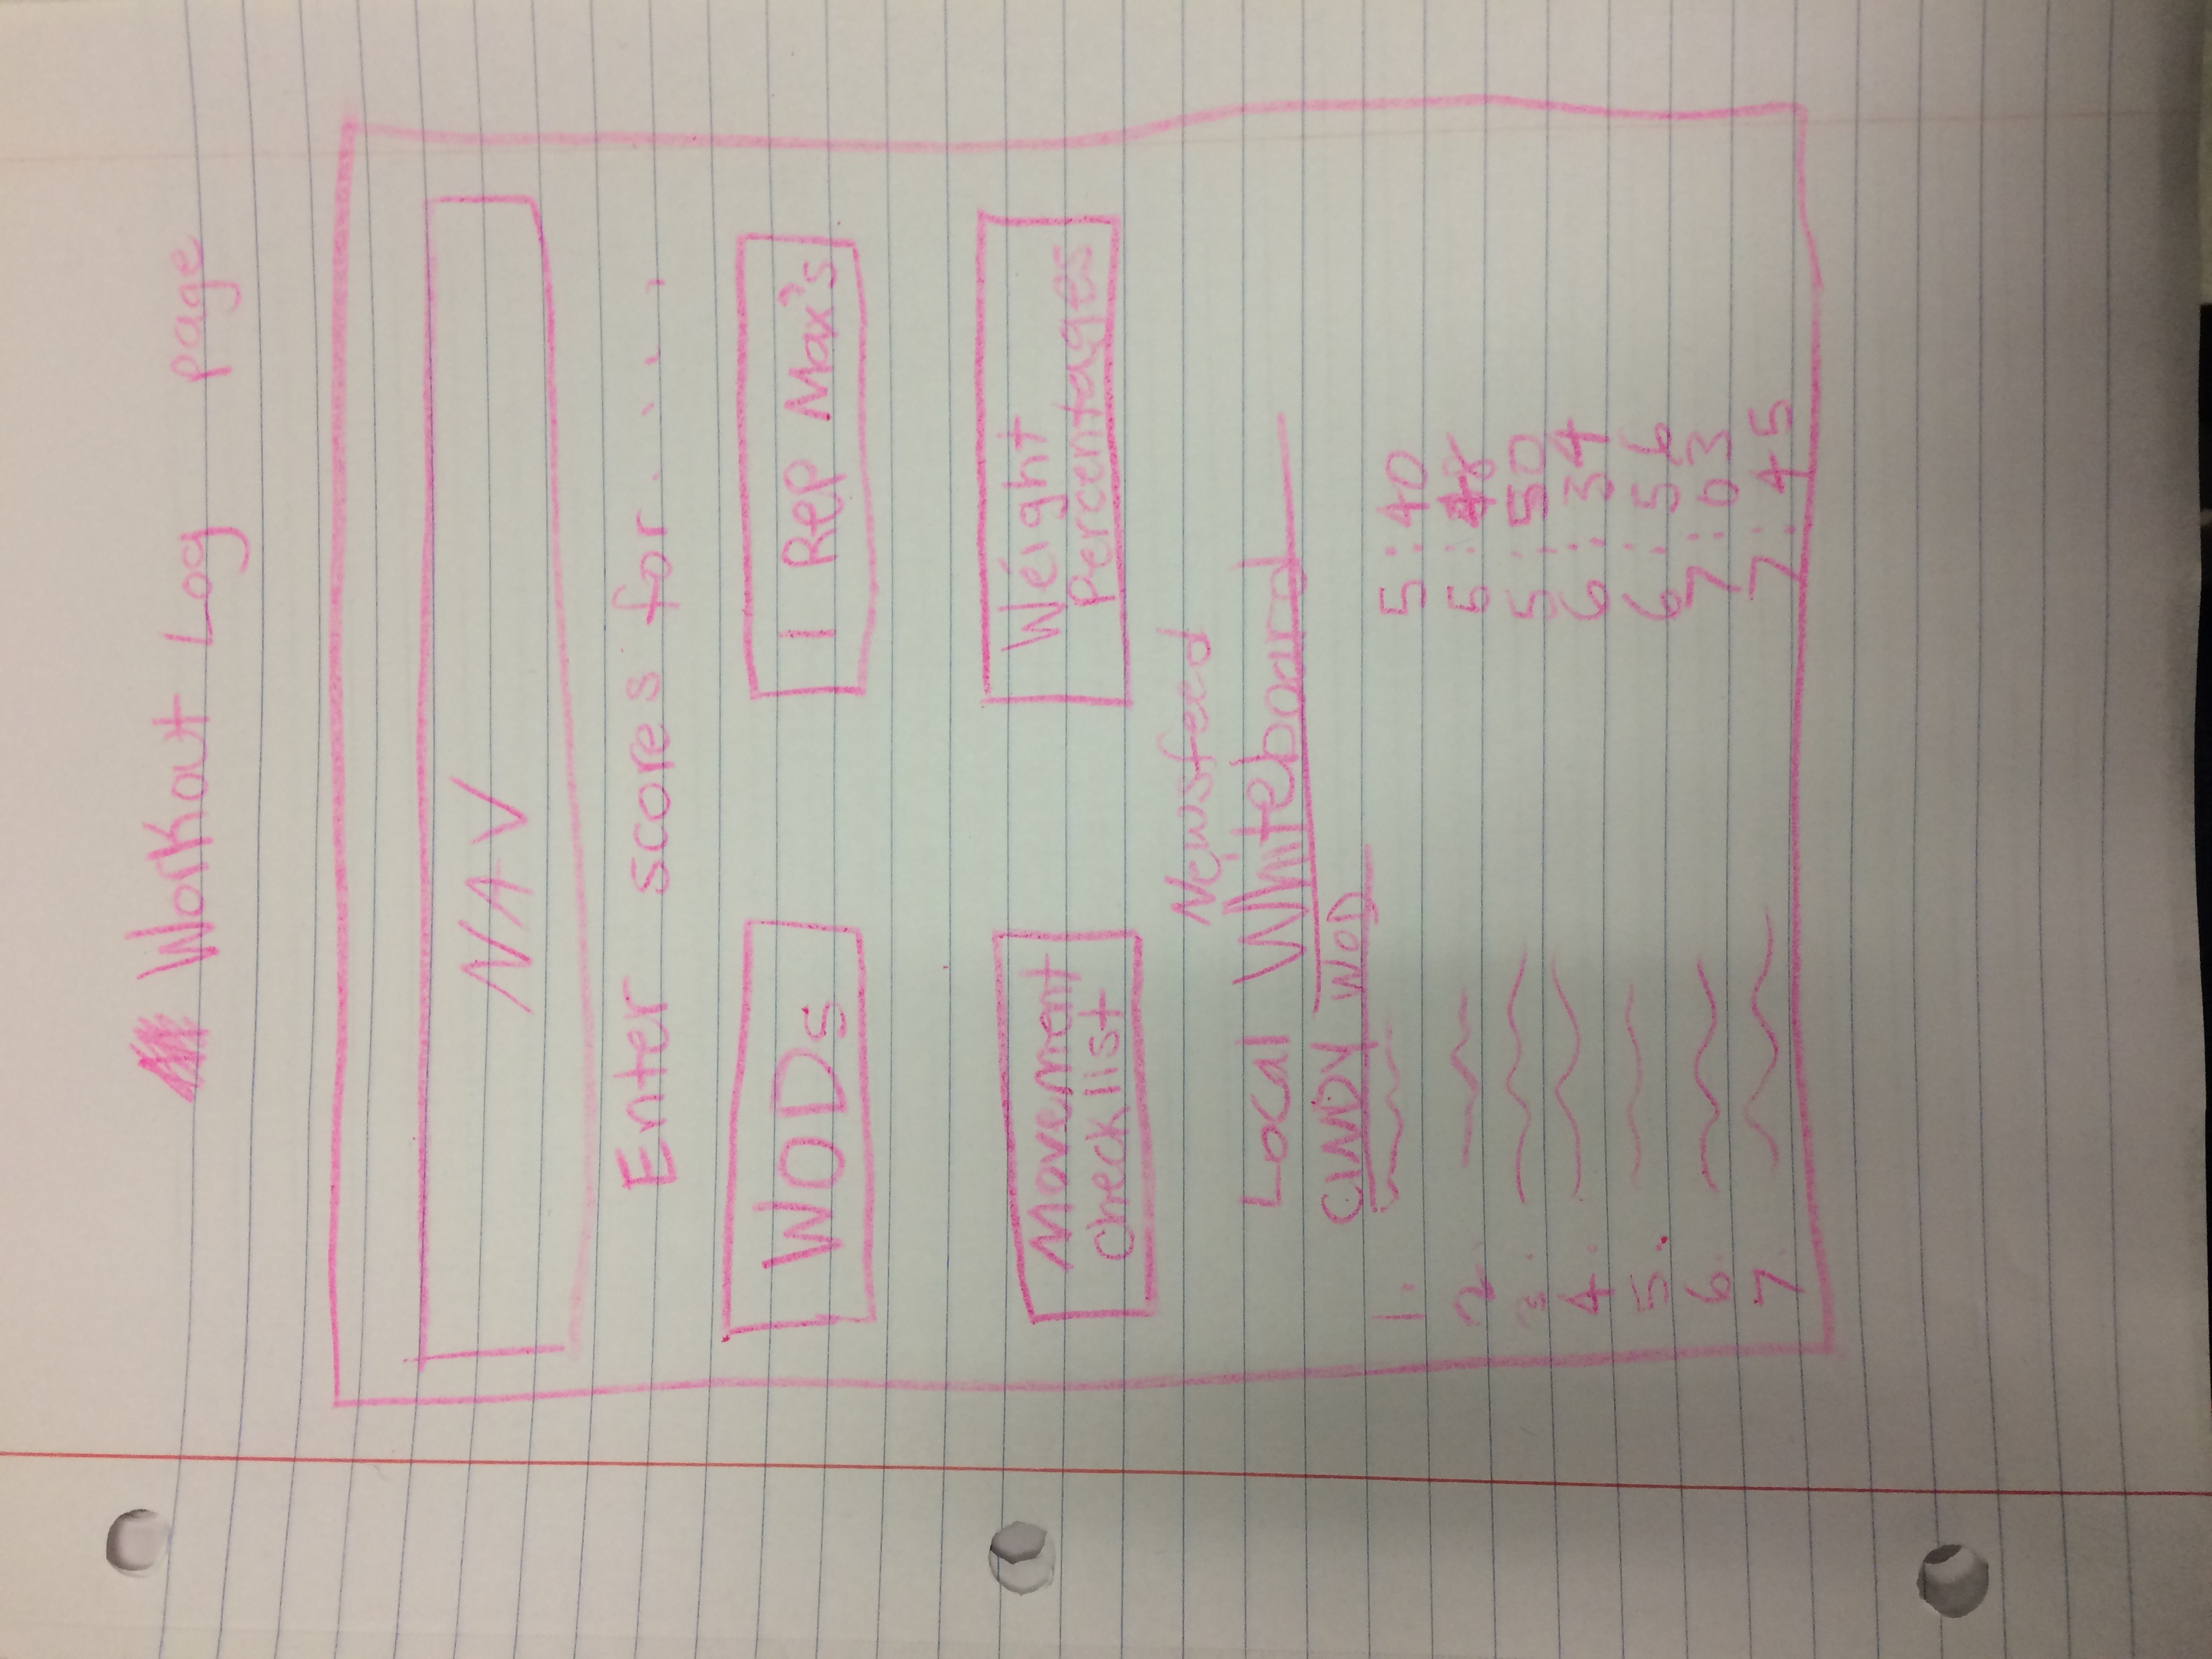 Workout Log page
NAV
Enter scores for.....
WODs
1 Rep Max's
Movement
checklist
Weight
Percentages
Newsfeed
Local Whiteboard
CINDY WOD
1. 5:40
2. 5:48
3. 5:50
4. 6:34
5. 6:56
6. 7:03
7. 7:45